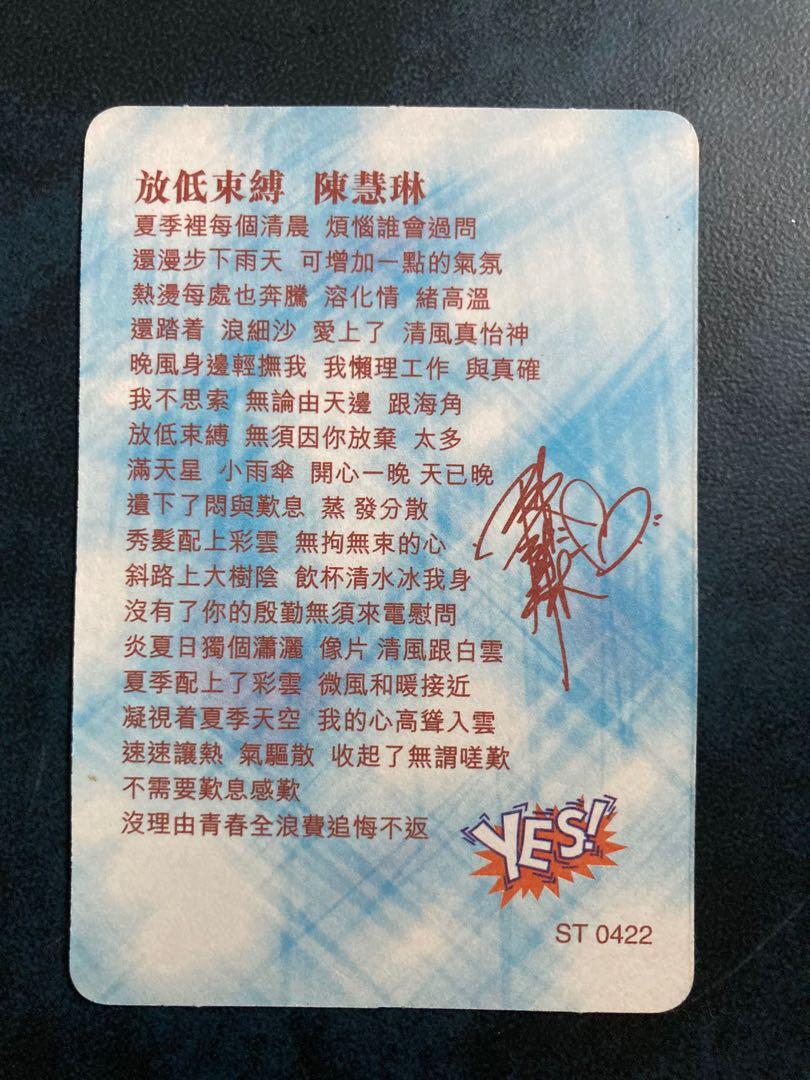 放低束縛 陳慧琳
夏季裡每個清晨 煩惱誰會過問
還漫步下雨天 可增加一點的氣氛
熱燙每處也奔騰 溶化情 緒高溫
還踏着 浪細沙 愛上了 清風真怡神
晚風身邊輕撫我 我懶理工作 與真確
我不思索 無論由天邊 跟海角
放低束縛 無須因你放棄 太多
滿天星 小雨傘 開心一晚 天已晚
遺下了悶與歎息 蒸 發分散
秀髮配上彩雲 無拘無束的心
斜路上大樹陰 飲杯清水冰我身
沒有了你的殷勤無須來電慰問
炎夏日獨個瀟灑 像片 清風跟白雲
夏季配上了彩雲 微風和暖接近
凝視着夏季天空 我的心高聳入雲
速速讓熱 氣驅散 收起了無謂嗟歎
不需要歎息感歎
沒理由青春全浪費追悔不返
YES!
ST 0422